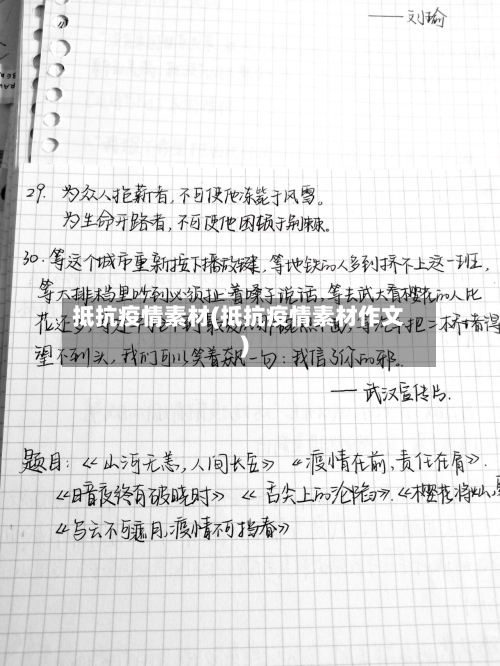 ——刘瑜
29. 为众人抱薪者,不可使他冻毙于风雪。
为生命开路者,不可使他困顿于荆棘。
30. 等这个城市重新按下播放键,等地铁的人多到挤不上这一班,
等大排档里吵到必须扯着嗓子说话,等去武大看樱花的人比
抵抗疫情素材(抵抗疫情素材作文
)
花还多,
望不到头,我们可以笑着飙一句:我信了你的邪。
——武汉宣传片.
题目:《山河无恙,人间长安》《疫情在前,责任在肩》.
《暗夜终有破晓时》《舌尖上的沦陷》.《樱花将灿,
《乌云不可遮月,疫情不可挡春》